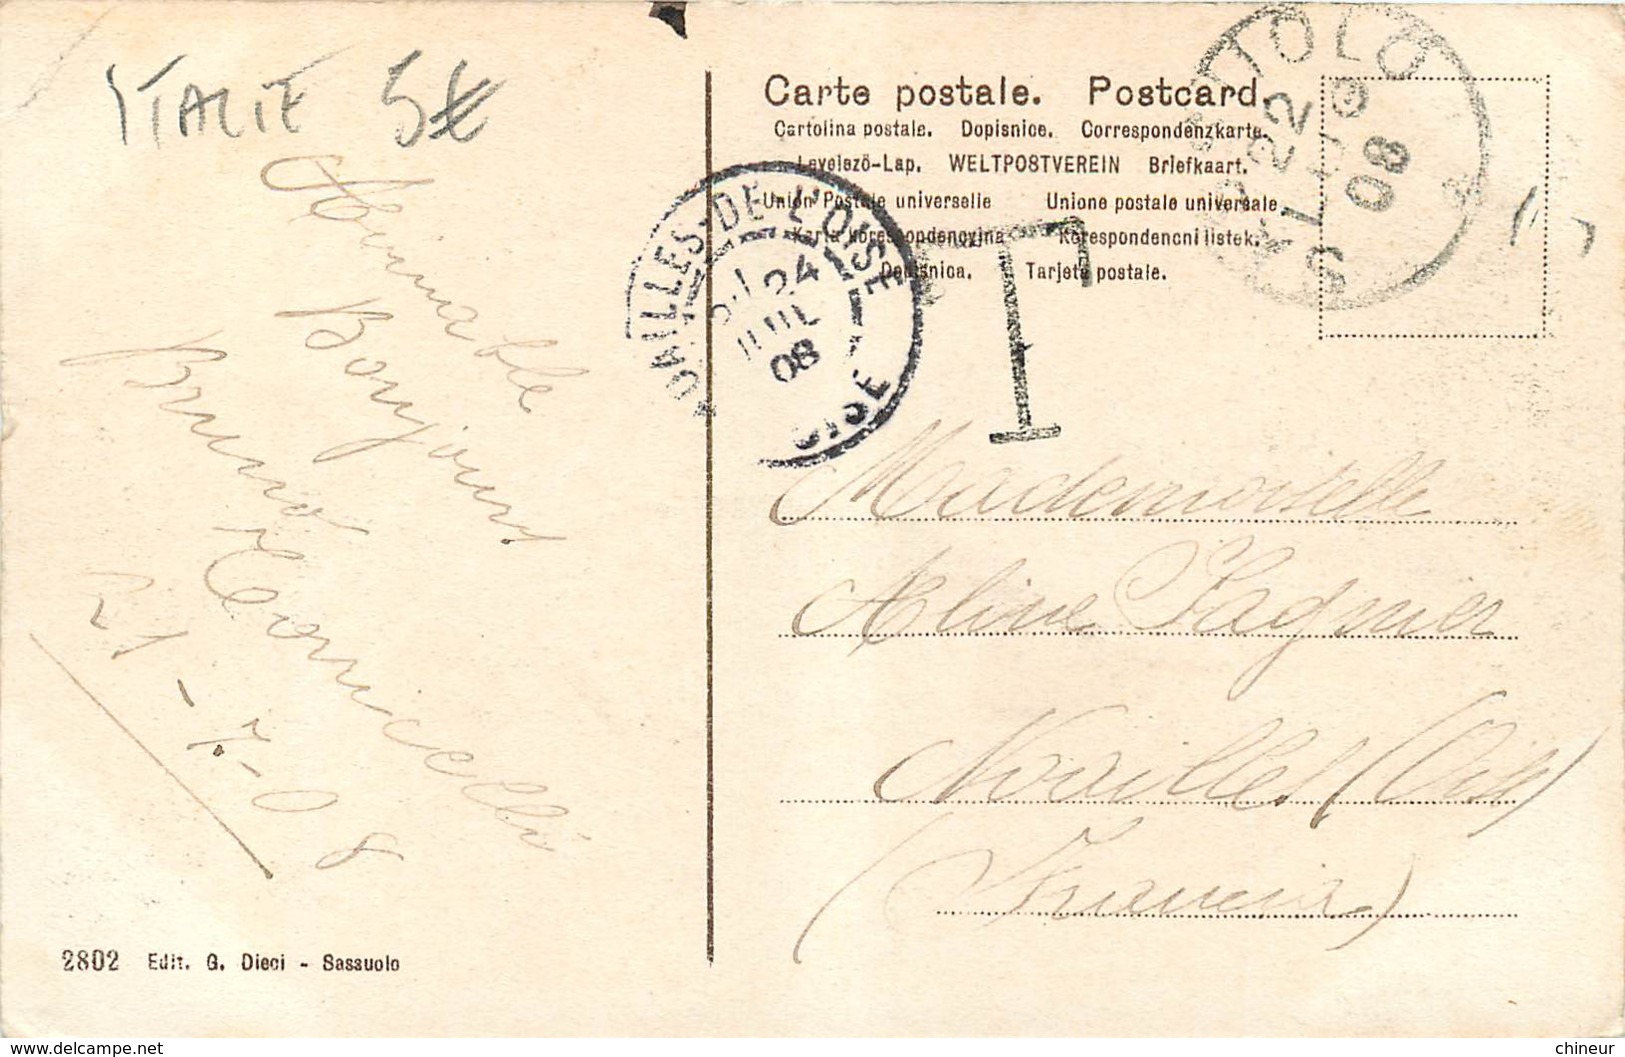 ITALIE 5€
Aimable
Bonjour
Bruno Torricelli
21-7-08
2802 Edit. G. Dieci - Sassuolo
Carte postale. Postcard.
Cartolina postale. Dopisnice. Correspondenzkarte.
Levelező-Lap. WELTPOSTVEREIN Briefkaart.
Union Postale universelle Unione postale universale
Karta korespondencyjna Korespondencni listek.
Dopisnica. Tarjeta postale.
NOAILLES-DE-L'OISE
24
JUIL
08
OISE
T
22
LUGLIO
08
Mademoiselle
Aline Fagnier
Noailles (Oise)
(Francia)
https://www.delcampe.net
chineur